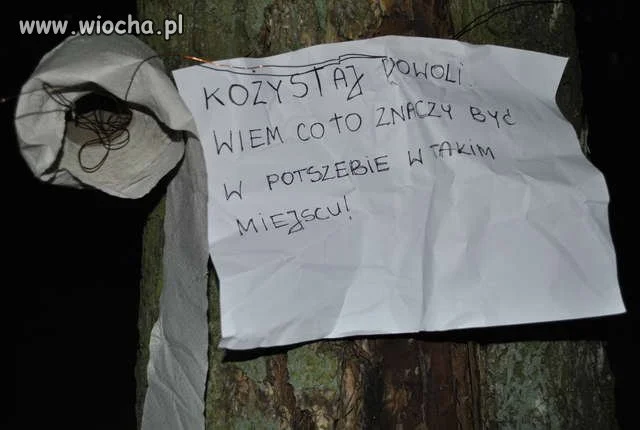 www.wiocha.pl
KOŻYSTAJ DOWOLI.
WIEM CO TO ZNACZY BYĆ
W POTSZEBIE W TAKIM
MIEJSCU!